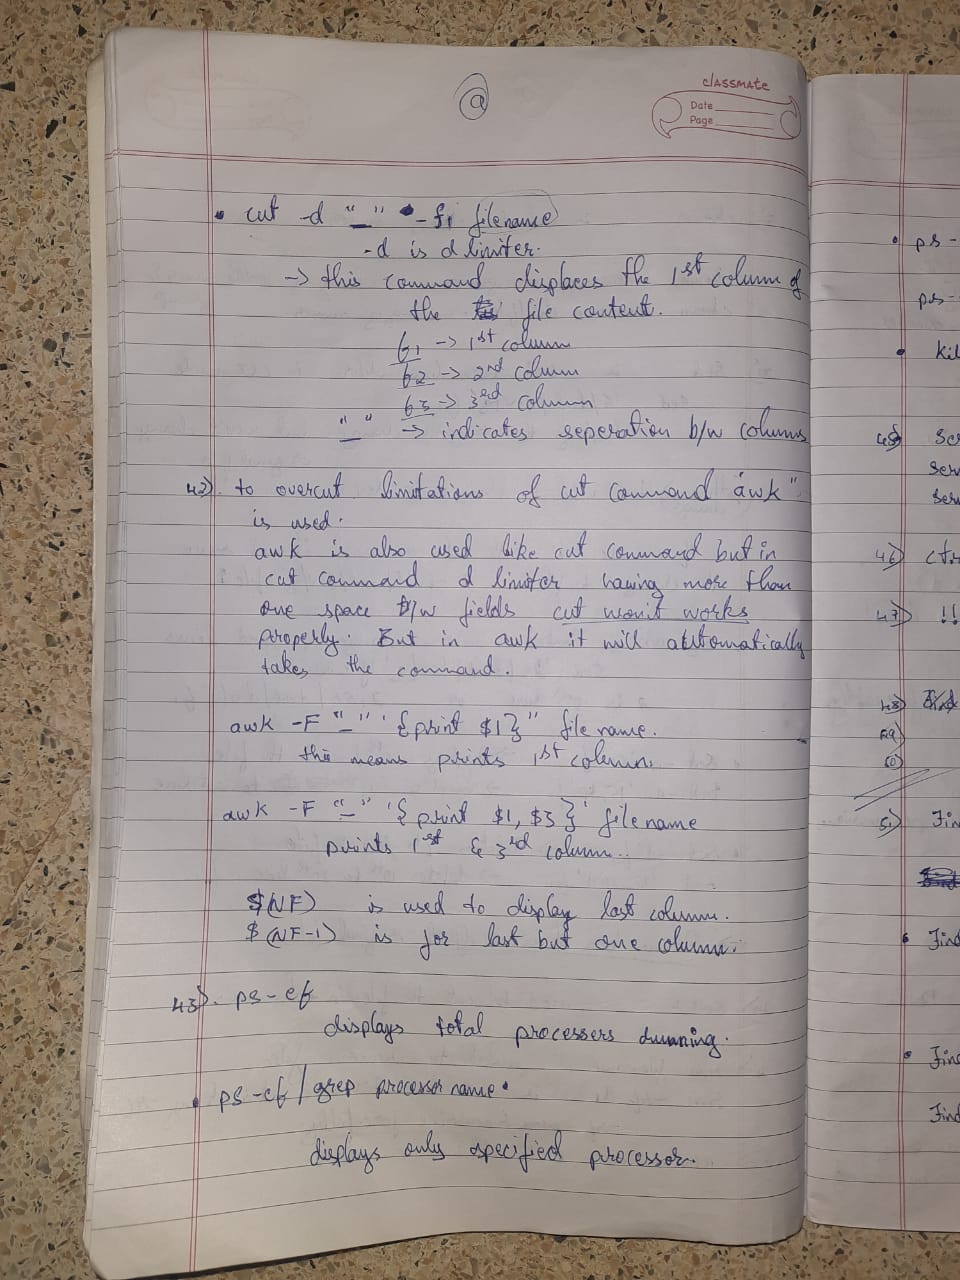 a
classmate
Date
Page
• cut -d "_" -f1 filename
-d is d limiter.
-> this command displaces the 1st column of
the file content.
f1 -> 1st column
f2 -> 2nd column
f3 -> 3rd column
"_" -> indicates seperation b/w columns
42). to overcut limitations of cut command awk"
is used.
awk is also used like cut command but in
cut command d limiter having more than
one space b/w fields cut won't works
properly. But in awk it will automatically
takes the command.
awk -F "_" '{print $1}" filename.
this means prints 1st column.
awk -F "_" '{print $1, $3}' filename
prints 1st & 3rd column..
$(NF) is used to display last column.
$(NF-1) is for last but one column.
43). ps-ef
displays total processers running.
• ps-ef/grep processor name.
displays only specified processor.
• ps-
ps-
• kil
45) se
ser
ser
46) ctr
47) !!
48)
49)
50)
51) Fin
• Find
• Find
Find